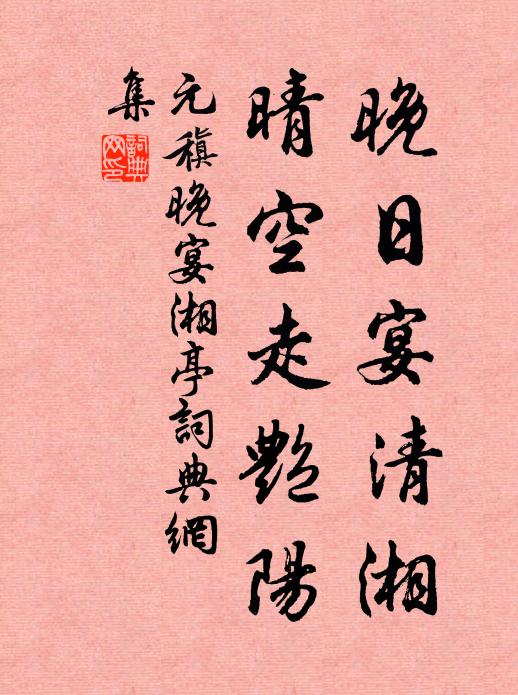 晚日宴清湘
晴空走艷陽
元稹晚宴湘亭詞典網
集
詞典網印